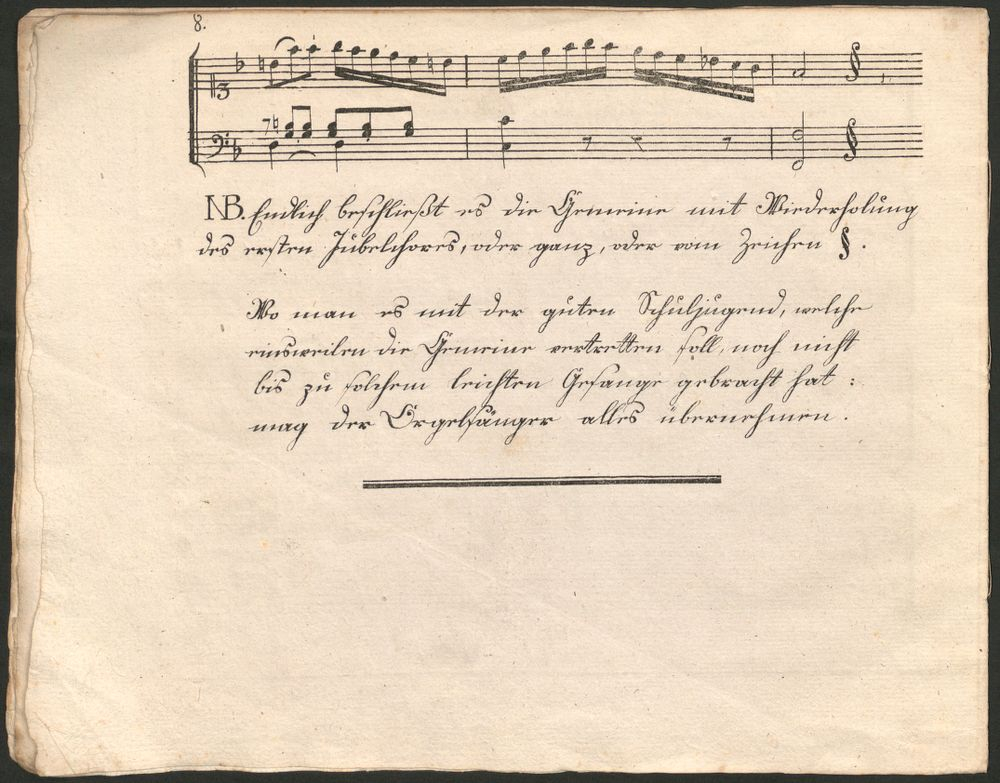 8.
NB. Endlich beschließt es die Gemeine mit Wiederholung
des ersten Jubelchores, oder ganz, oder vom Zeichen §.
Wo man es mit der guten Schuljugend, welche
einsweilen die Gemeine vertretten soll, noch nicht
bis zu solchem leichten Gesange gebracht hat:
mag der Orgelsänger alles übernehmen.